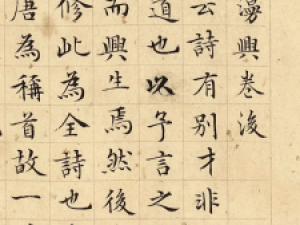 漫興卷後
云詩有別才非
道也以予言之
而興生焉然後
修此為全詩也
唐為稱首故一